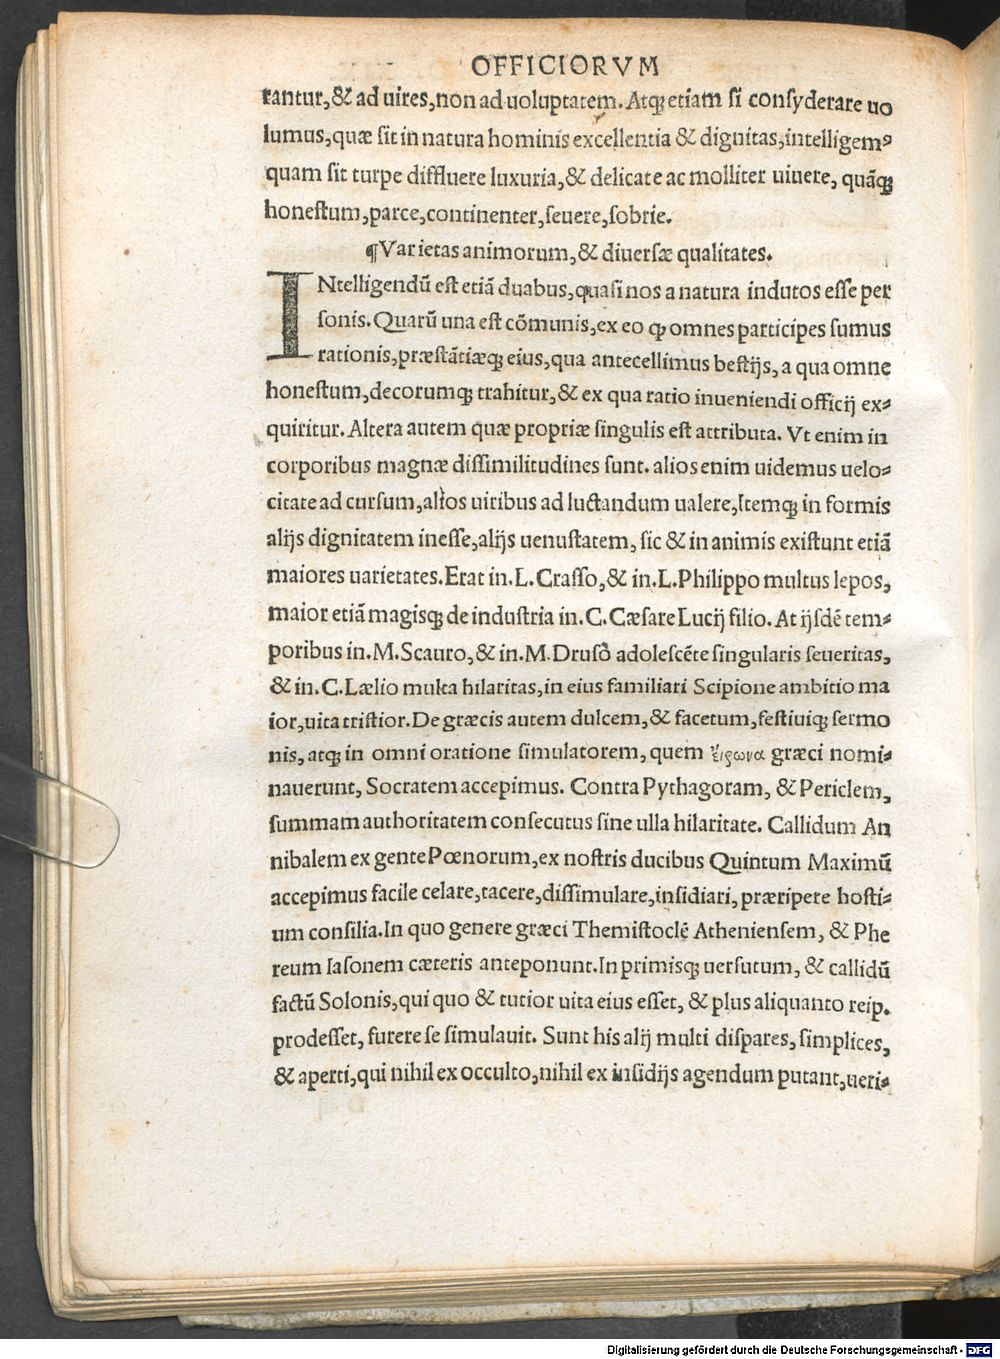 OFFICIORVM
rantur,& ad uires,non ad uoluptatem. Atq; etiam si consyderare uo
lumus,quæ sit in natura hominis excellentia & dignitas,intelligemꝰ
quam sit turpe diffluere luxuria,& delicate ac molliter uiuere, quãq;
honestum,parce,continenter,seuere,sobrie.
¶Varietas animorum,& diuersæ qualitates.
INtelligendũ est etiã duabus,quasi nos a natura indutos esse per
sonis. Quarũ una est cõmunis,ex eo ꝙ omnes participes sumus
rationis,præstãtiæq; eius,qua antecellimus bestijs, a qua omne
honestum,decorumq; trahitur,& ex qua ratio inueniendi officij ex-
quiritur. Altera autem quæ propriæ singulis est attributa. Vt enim in
corporibus magnæ dissimilitudines sunt. alios enim uidemus uelo-
citate ad cursum,alios uiribus ad luctandum ualere,Itemq; in formis
alijs dignitatem inesse,alijs uenustatem, sic & in animis existunt etiã
maiores uarietates. Erat in. L. Crasso,& in. L. Philippo multus lepos,
maior etiã magisq; de industria in. C. Cæsare Lucij filio. At ijsdẽ tem-
poribus in. M. Scauro,& in. M. Druso adolescẽte singularis seueritas,
& in. C. Lælio multa hilaritas,in eius familiari Scipione ambitio ma
ior,uita tristior. De græcis autem dulcem,& facetum,festiuiq; sermo
nis, atq; in omni oratione simulatorem, quem εἴρωνα græci nomi-
nauerunt, Socratem accepimus. Contra Pythagoram, & Periclem,
summam authoritatem consecutus sine ulla hilaritate. Callidum An
nibalem ex gente Pœnorum,ex nostris ducibus Quintum Maximũ
accepimus facile celare,tacere,dissimulare,insidiari, præripere hosti-
um consilia.In quo genere græci Themistoclẽ Atheniensem, & Phe
reum Iasonem cæteris anteponunt.In primisq; uersutum, & callidũ
factũ Solonis,qui quo & tutior uita eius esset, & plus aliquanto reip.
prodesset, furere se simulauit. Sunt his alij multi dispares, simplices,
& aperti,qui nihil ex occulto,nihil ex insidijs agendum putant,ueri-
Digitalisierung gefördert durch die Deutsche Forschungsgemeinschaft - DFG